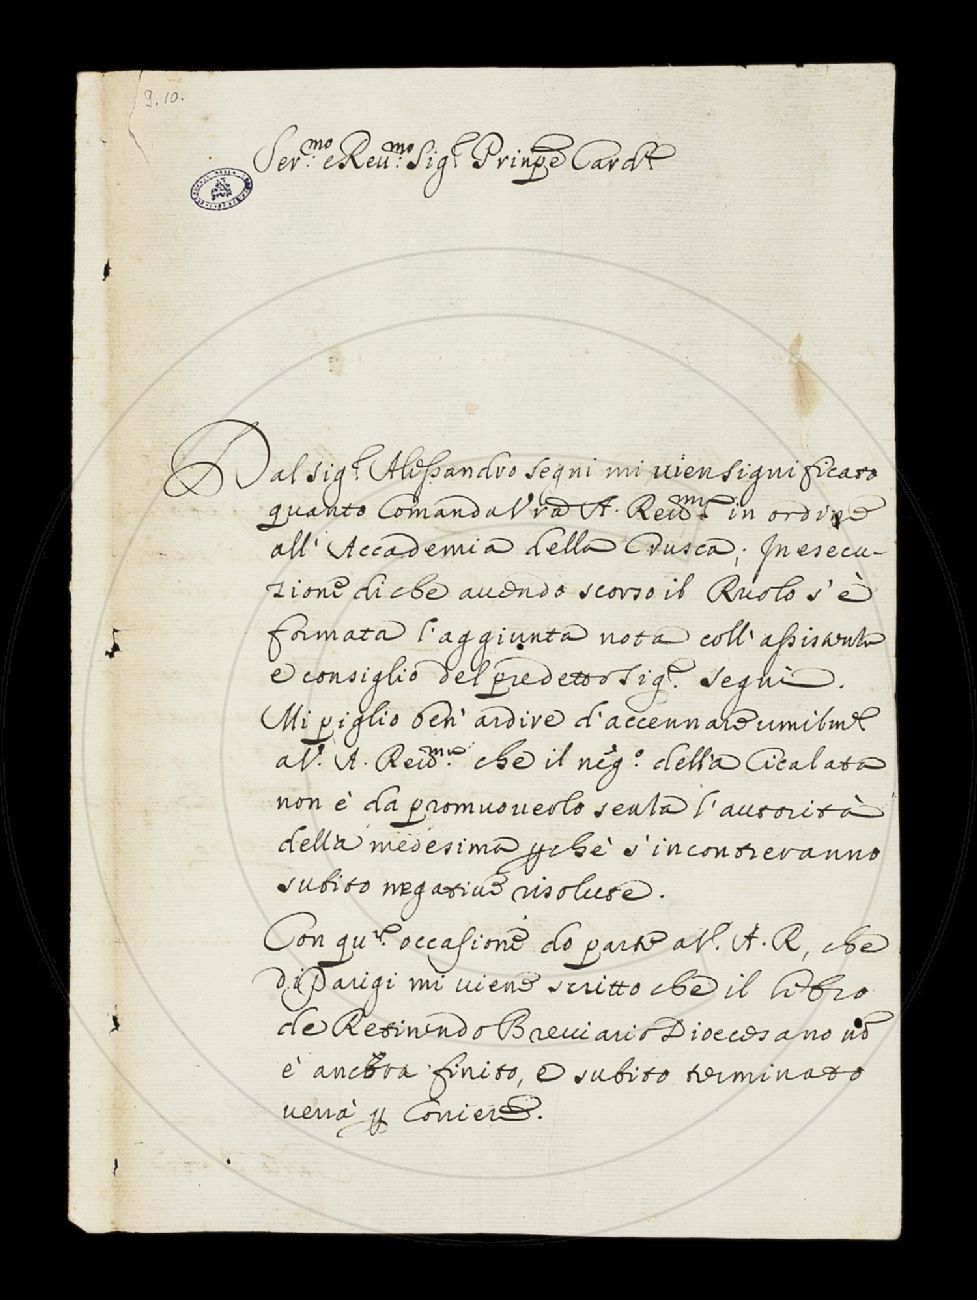 9. 10.
Ser.mo e Reu.mo Sig.r Prinpe Card.l
Dal sig.r Alessandro segni mi vien significato
quanto Comanda V'ra A. Reu.ma in ordine
all' Accademia della Crusca; In esecu-
zione di che auendo scorso il Ruolo s' è
formata l'aggiunta nota coll' assistenza
e consiglio del predetto sig.r segni.
Mi piglio ben' ardire d'accennare umilm.te
a V.ra A. Reu.ma che il neg.o della Cicalata
non è da promuouerlo senza l'autorità
della medesima pchè s'incontreranno
subito negatiue risolute.
Con qu.ta occasione do parte a V. A. R, che
di Parigi mi viene scritto che il libro
de Retinendo Breviario Dioecesano nō
è ancora finito, e subito terminato
verrà p Coriere.